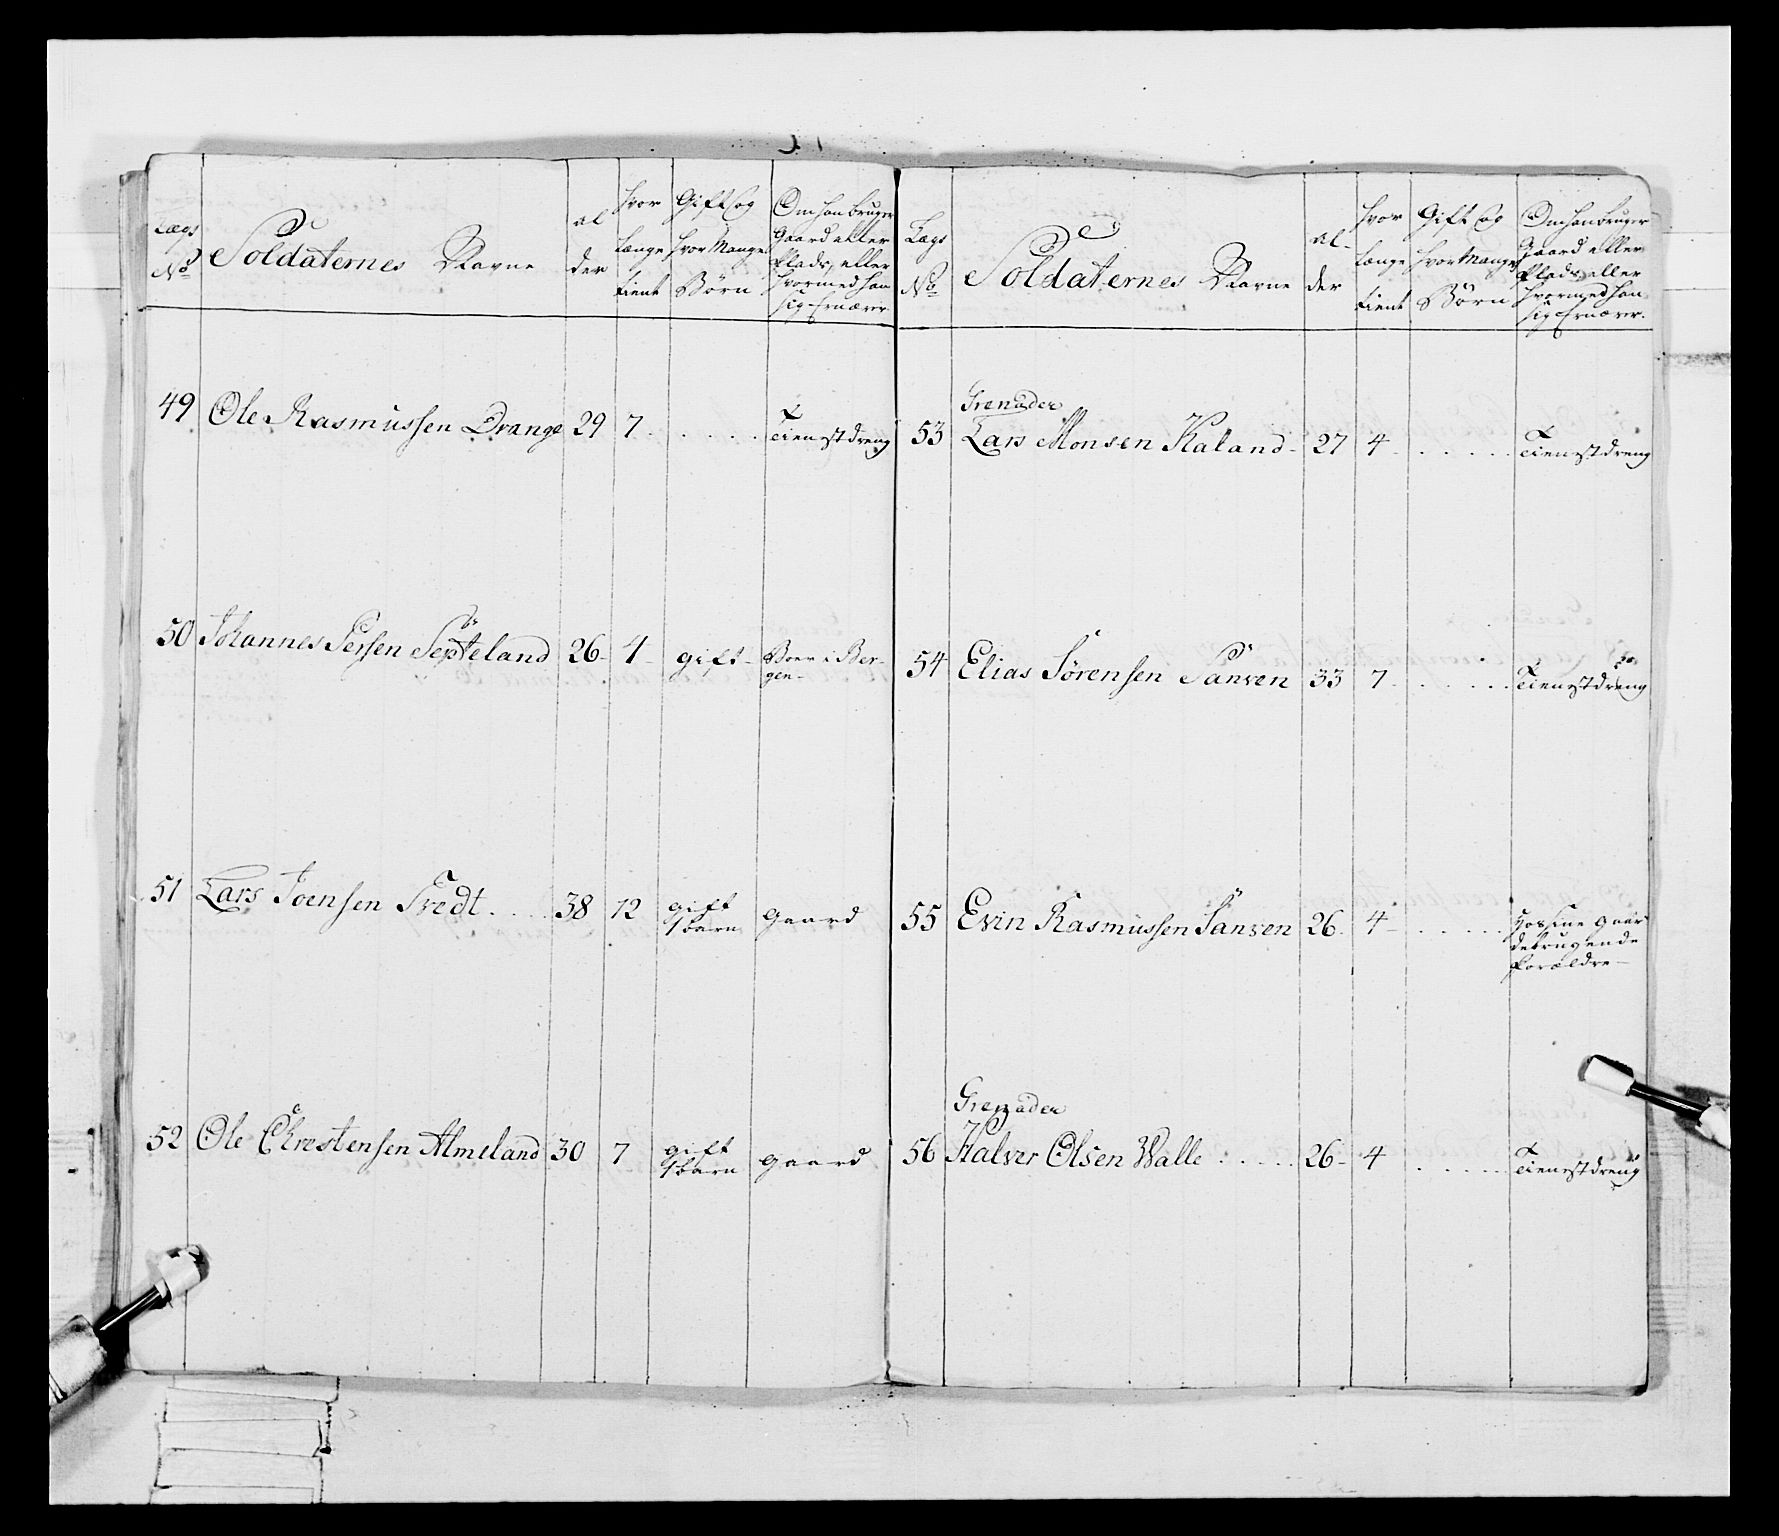 Lægs No Soldaternes Navne al der hvor længe tient Gift og hvor Mange Børn Om han bruger Gaard eller Plads, eller hvormed han sig Ernærer
49 Ole Rasmussen Drange 29 7 . . . . . Tienestdreng
50 Johannes Persen Septeland 26 4 gift Boer i Ber-
gen
51 Lars Joensen Tvedt 38 12 gift gaard
1 barn
52 Ole Chrestensen Almeland 30 7 gift gaard
1 barn
Lægs No Soldaternes Navne al- der hvor længe tient Gift og hvor Mange Børn Om han bruger Gaard eller Plads, eller hvormed han sig Ernærer
Grenader
53 Lars Monsen Kaland 27 4 . . . . . Tienestdreng
54 Elias Sørensen Sanven 33 7 . . . . . Tienestdreng
55 Evin Rasmussen Sanven 26 4 . . . . . hos sine gaar
debrugende
Forældre
Grenader
56 Halver Olsen Walle . . . . . 26 4 . . . . . Tienestdreng